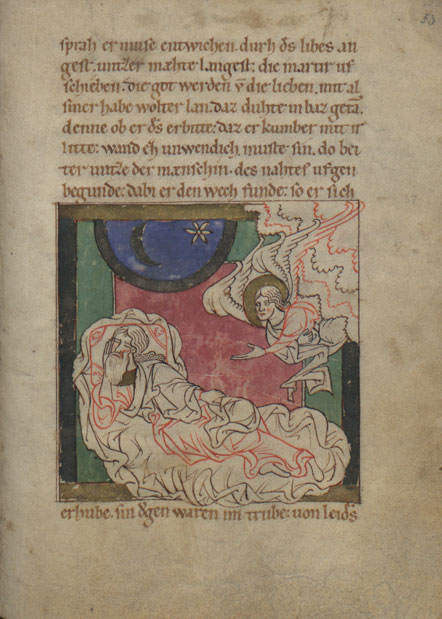 53
sprah er muͦse entwichen. durh ds libes an
gest. untzer mæhte langest: die martir uf
schieben. die got werden vn̄ die lieben. mit al
siner habe wolter lan. daz duhte in baz getā.
denne ob er ds erbitte: daz er kumber mit ir
litte: wand ez unwendich muͦste sin. do bei
ter untze der mænschin. des nahtes ufgen
begunde: dabi er den wech funde: so er sich
erhube. sin ǒgen waren im trube: von leids